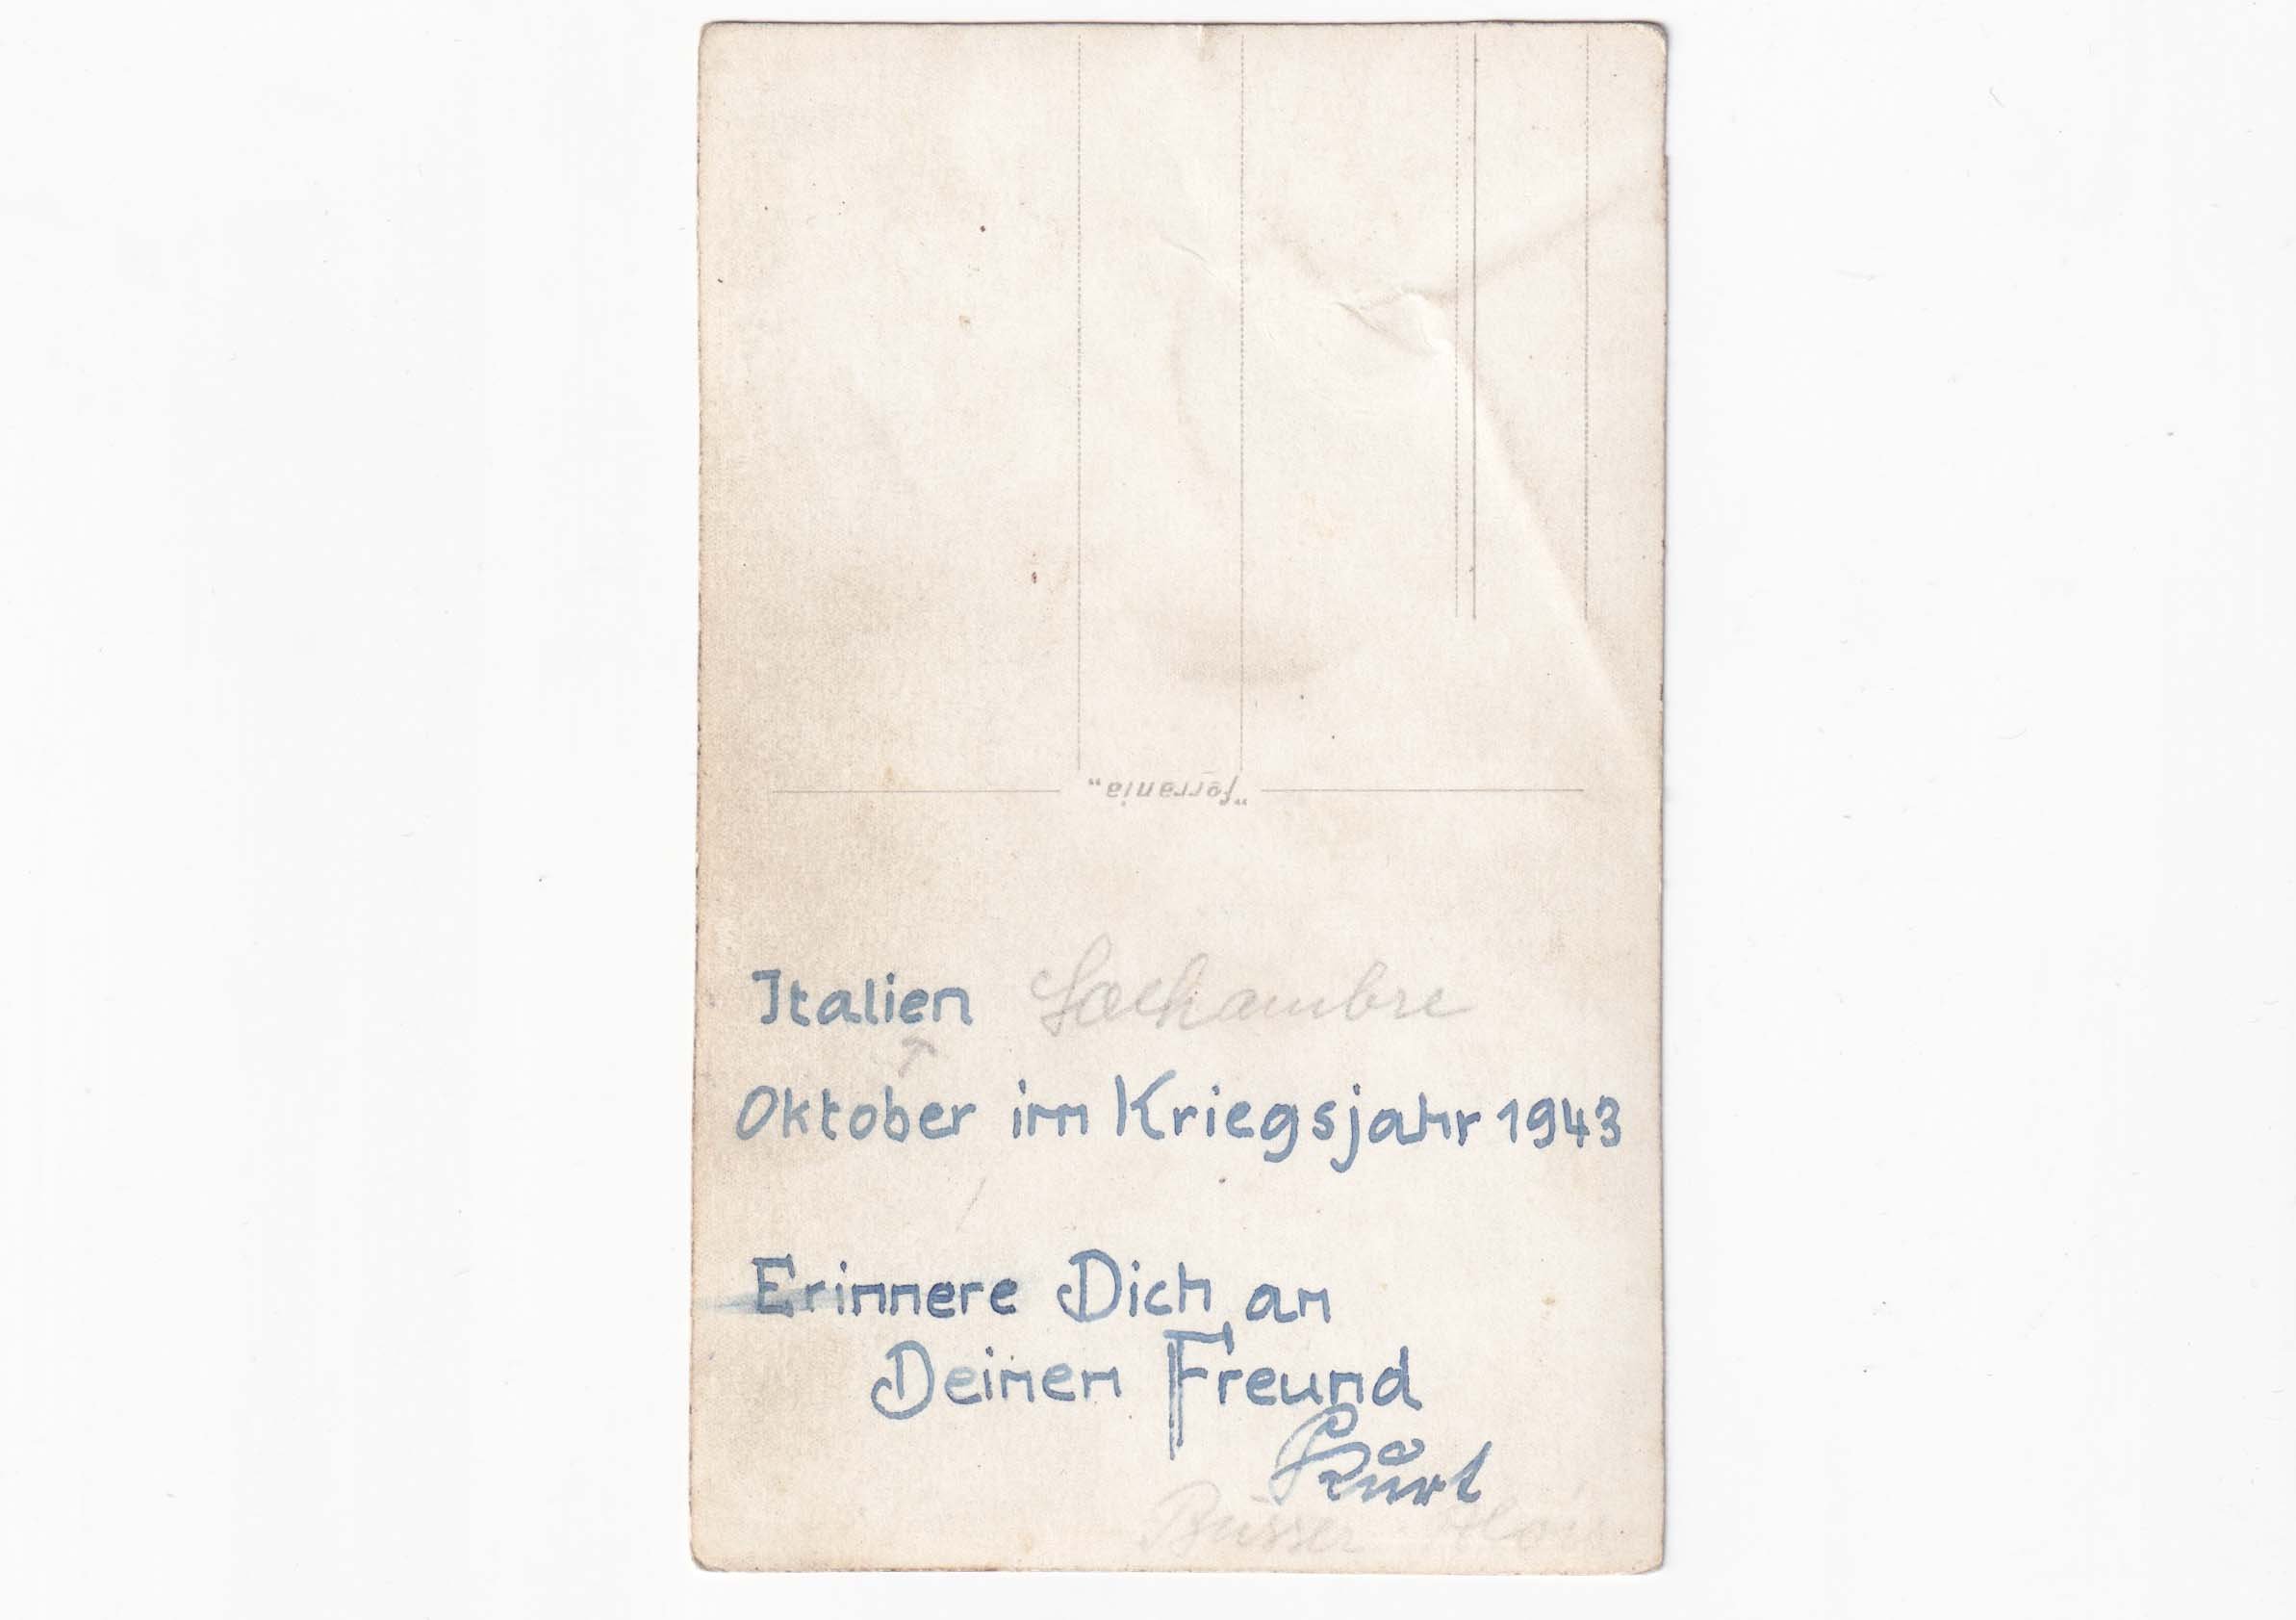 "ferrania"
Italien Lachambre
Oktober im Kriegsjahr 1943
Erinnere Dich an
Deinen Freund
Kurt
Büsser